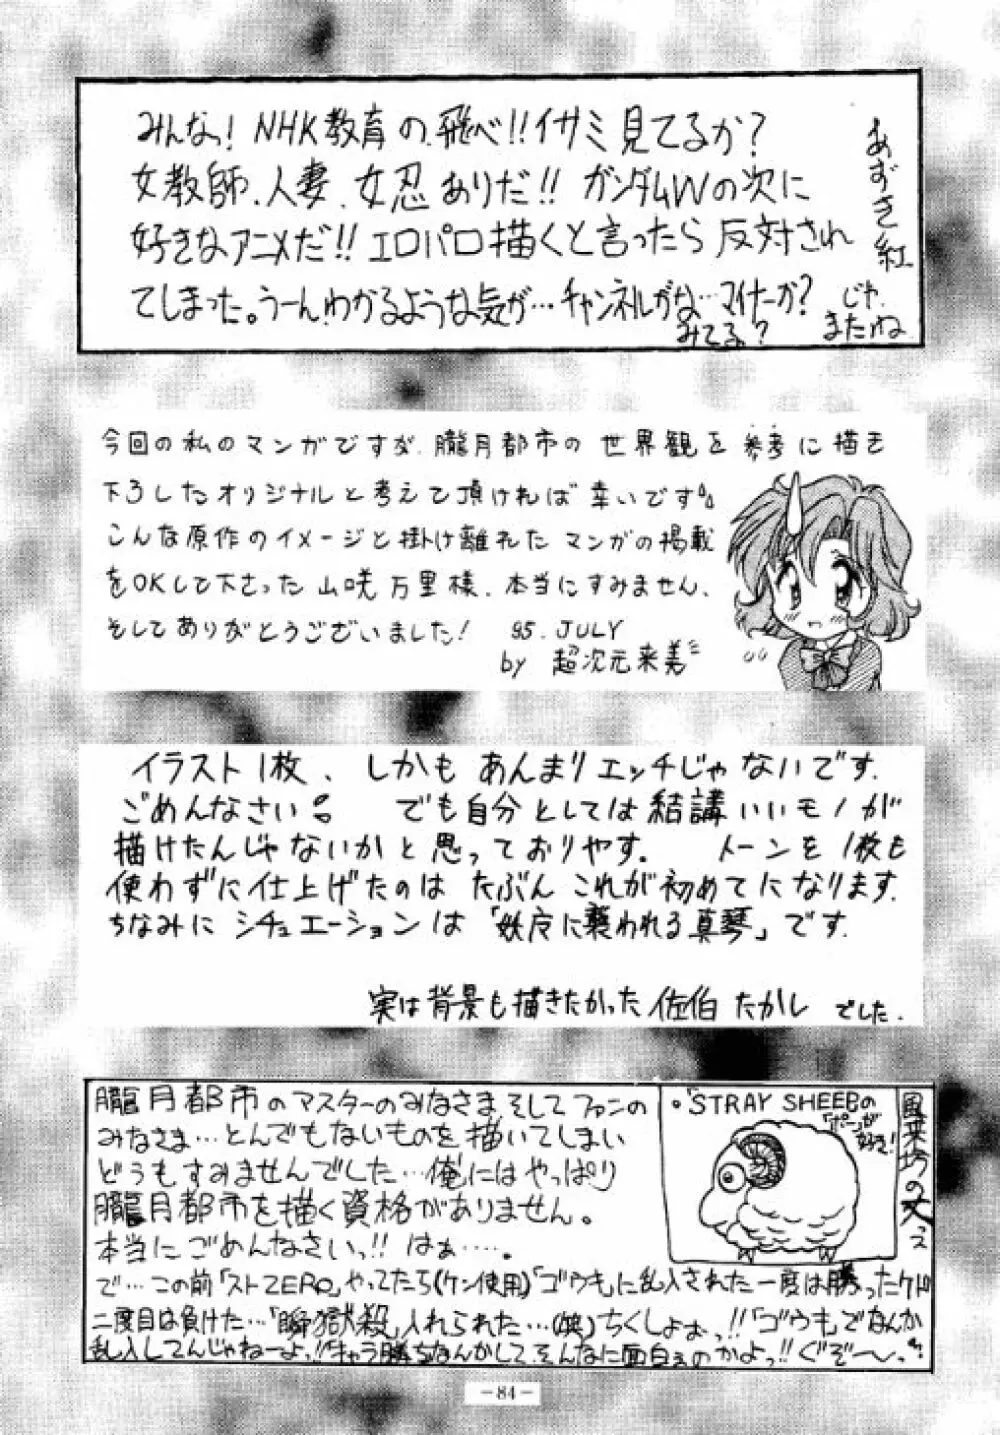 みんなっ! NHK教育の、飛べ!!イサミ見てるか?
女教師、人妻、女忍ありだ!! ガンダムWの次に
好きなアニメだ!! エロパロ描くと言ったら反対され
てしまった。うーん、わかるような気が…チャンネルがな…マイナーか?
みてる?
あずき紅
じゃ、
またね
今回の私のマンガですが、朧月都市の世界観を参考に描き
下ろしたオリジナルと考えて頂ければ幸いです。
こんな原作のイメージと掛け離れたマンガの掲載
をOKして下さった山咲万里様、本当にすみません、
そしてありがとうございました!
95. JULY
by 超次元来美
イラスト1枚、しかもあんまりエッチじゃないです。
ごめんなさい。 でも自分としては結講いいモノが
描けたんじゃないかと思っておりやす。 トーンを1枚も
使わずに仕上げたのはたぶんこれが初めてになります。
ちなみにシチュエーションは「妖に襲われる真琴」です。
実は背景も描きたかった佐伯たかし でした。
朧月都市のマスターのみなさま、そしてファンの
みなさま…とんでもないものを描いてしまい
どうもすみませんでした…俺にはやっぱり
朧月都市を描く資格がありません。
本当にごめんなさいっ!! はぁ…。
で…この前「ストZERO」やってたら(ケン使用)「ゴウキ」に乱入された一度は勝ったケド
二度目は負けた…「瞬獄殺」入れられた…(哀)ちくしょおっ!!「ゴウキ」でなんか
乱入してんじゃねーよっ!!キャラ勝ちなんかして、そんなに面白えのかよっ!!ぐぞ〜っ
。「STRAY SHEEPの
「ポー」が
好き!
風来坊の丈っス
－84－